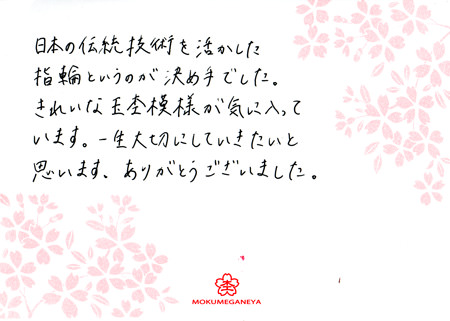 日本の伝統技術を活かした
指輪というのが決め手でした。
きれいな玉杢模様が気に入って
います。一生大切にしていきたいと
思います、ありがとうございました。
MOKUMEGANEYA